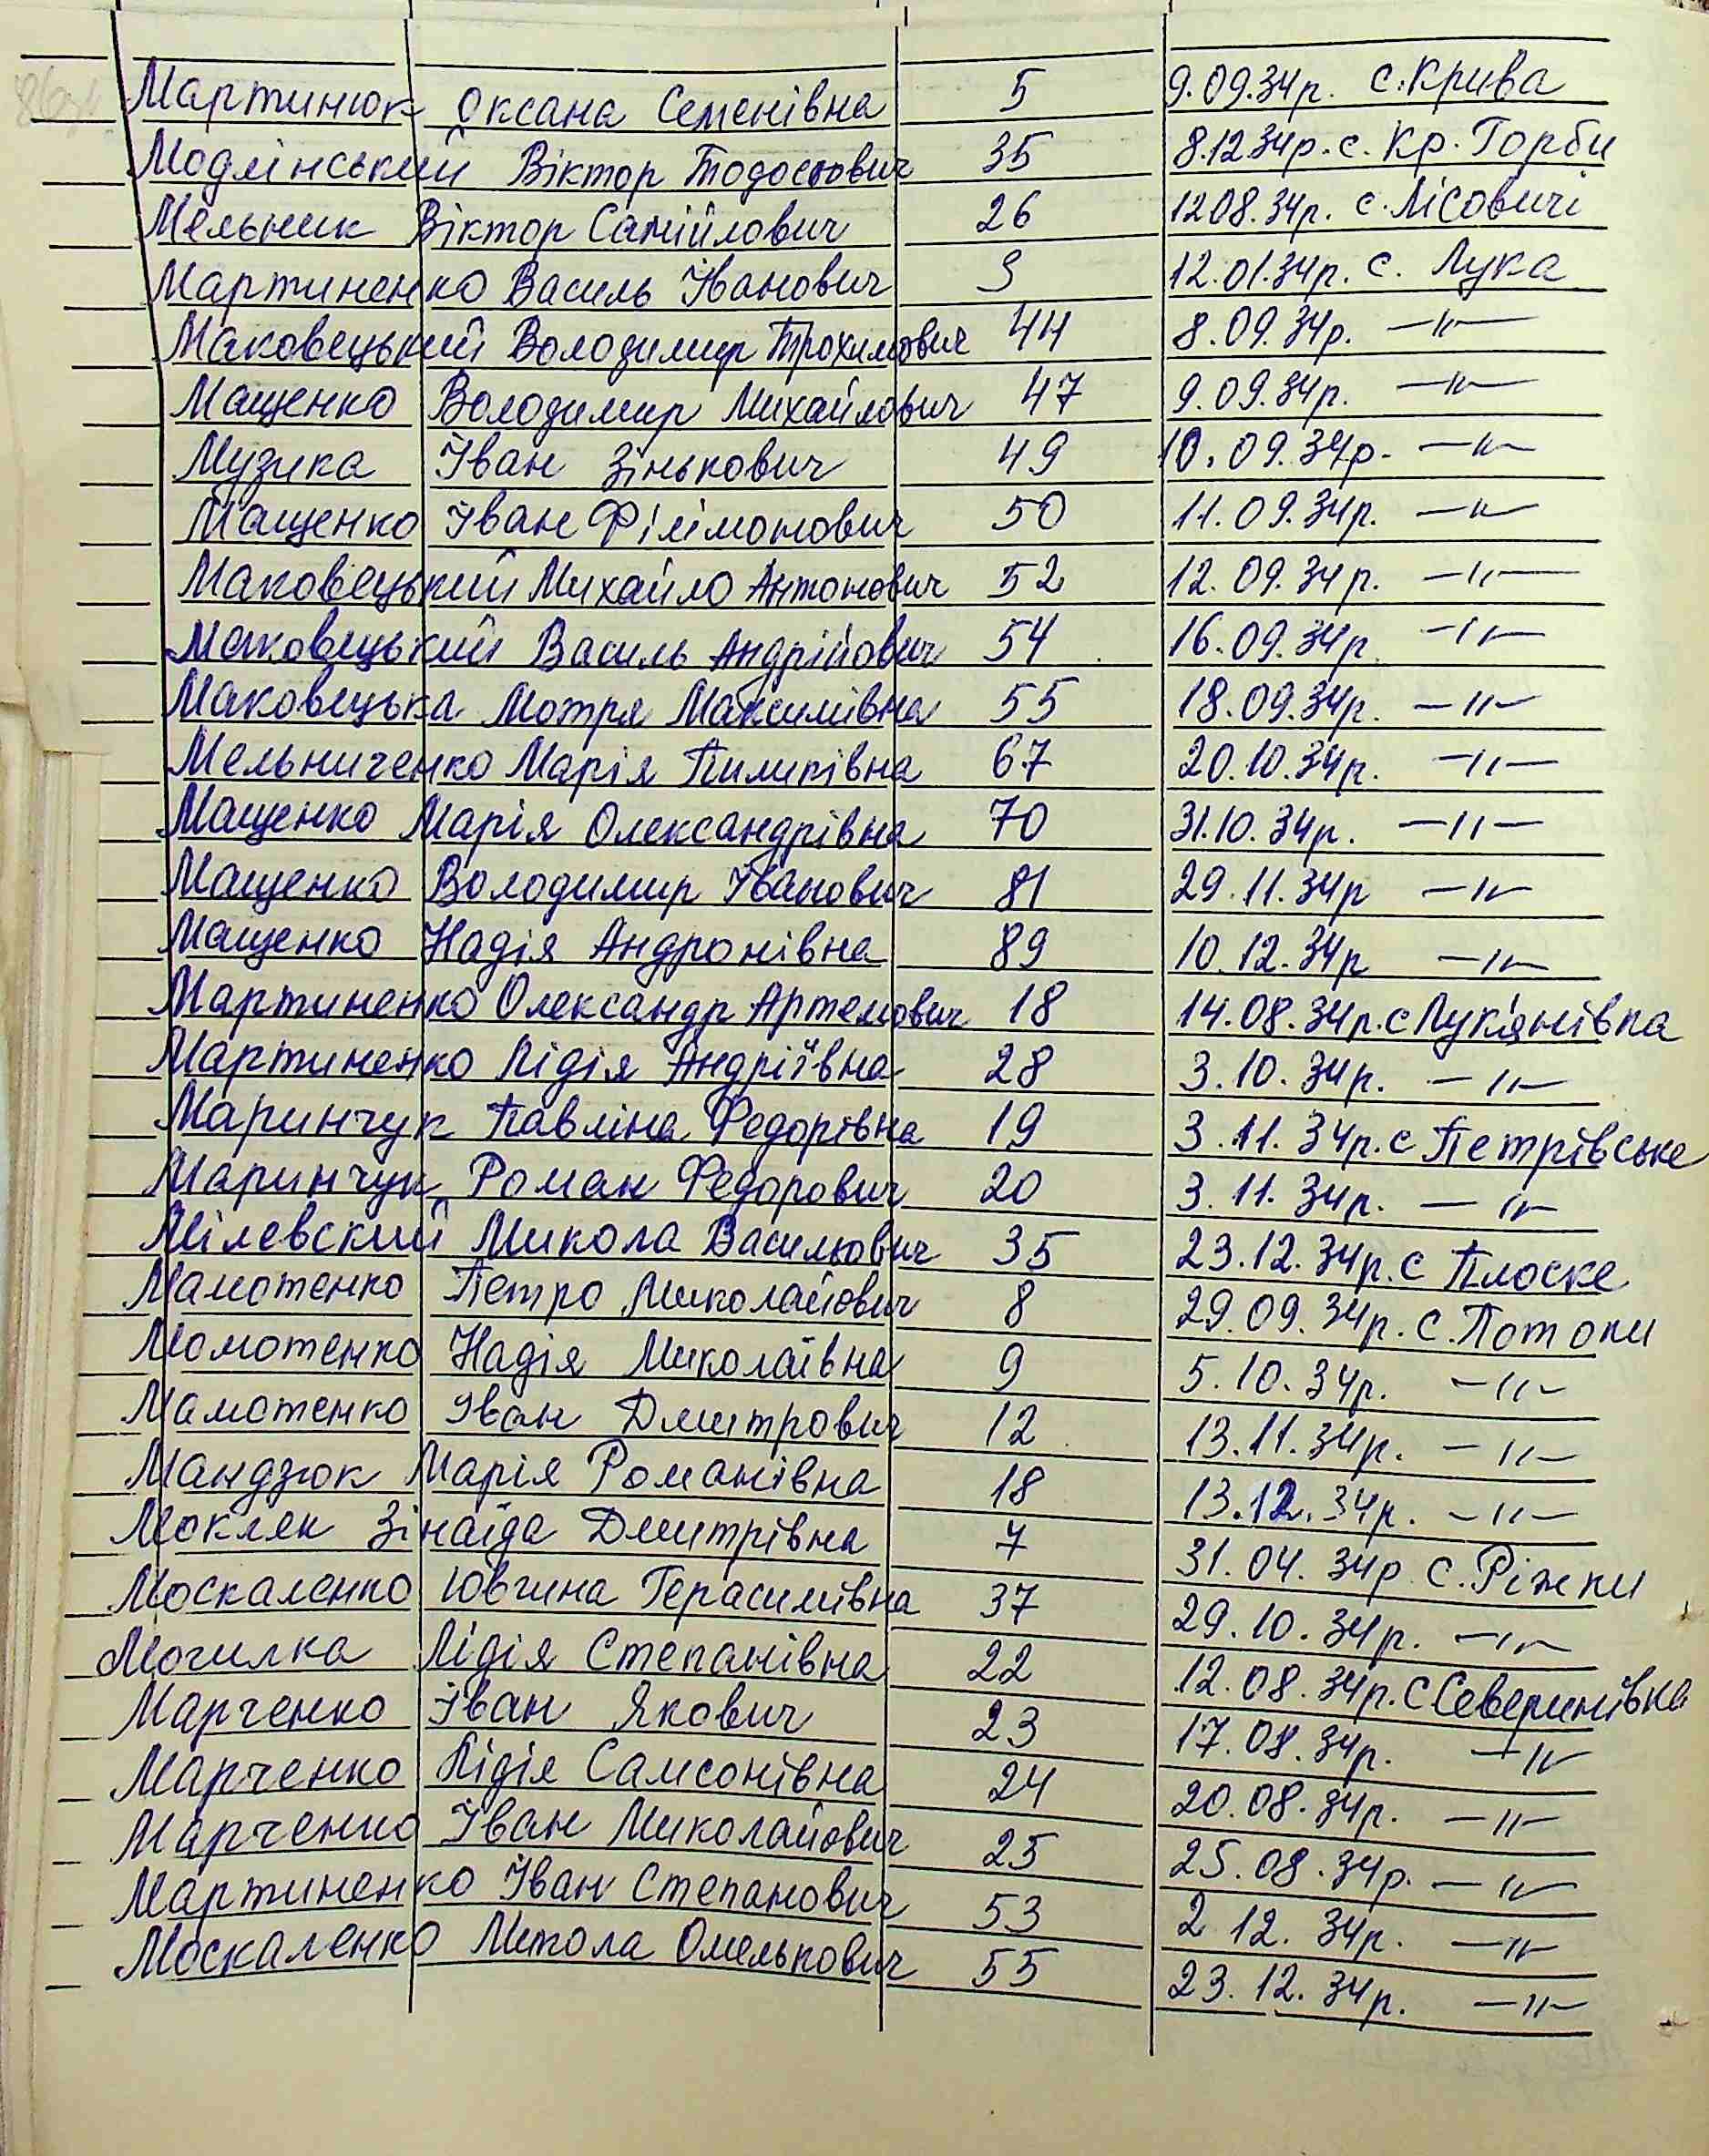 Мартинюк Оксана Семенівна 5 9.09.34р. с.Крива
Модлінський Віктор Тодосьович 35 8.12.34р. с. Кр. Горби
Мельник Віктор Самійлович 26 12.08.34р. с. Лісовичі
Мартиненко Василь Іванович 3 12.01.34р. с. Лука
Маковецький Володимир Трохимович 44 8.09.34р. —"—
Мащенко Володимир Михайлович 47 9.09.34р. —"—
Музика Іван Зінькович 49 10.09.34р. —"—
Мащенко Іван Філімонович 50 11.09.34р. —"—
Маковецький Михайло Антонович 52 12.09.34р. —"—
Маковецький Василь Андрійович 54 16.09.34р. —"—
Маковецька Мотря Максимівна 55 18.09.34р. —"—
Мельниченко Марія Пилипівна 67 20.10.34р. —"—
Мащенко Марія Олександрівна 70 31.10.34р. —"—
Мащенко Володимир Іванович 81 29.11.34р —"—
Мащенко Надія Андронівна 89 10.12.34р —"—
Мартиненко Олександр Артемович 18 14.08.34р. с Лук'янівка
Мартиненко Лідія Андріївна 28 3.10.34р. —"—
Маринчук Павліна Федорівна 19 3.11.34р. с Петрівське
Маринчук Роман Федорович 20 3.11.34р. —"—
Мілевский Микола Васильович 35 23.12.34р. с Плоске
Мамотенко Петро Миколайович 8 29.09.34р. с. Потоки
Момотенко Надія Миколаївна 9 5.10.34р. —"—
Мамотенко Іван Дмитрович 12 13.11.34р. —"—
Мандзюк Марія Романівна 18 13.12.34р. —"—
Мокляк Зінаїда Дмитрівна 7 31.04.34р с. Ріжки
Москаленко Ювгина Герасимівна 37 29.10.34р. —"—
Могилка Лідія Степанівна 22 12.08.34р. с Северинівка
Марченко Іван Якович 23 17.08.34р. —"—
Марченко Лідія Самсонівна 24 20.08.34р. —"—
Марченко Іван Миколайович 25 25.08.34р. —"—
Мартиненко Іван Степанович 53 2 12.34р. —"—
Москаленко Микола Омелькович 55 23.12.34р. —"—